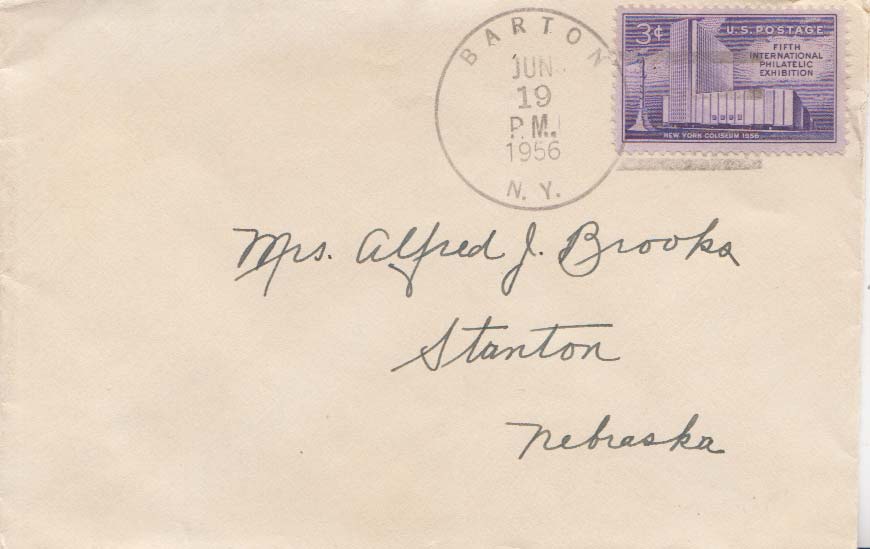 BARTON
JUN
19
P.M.
1956
N.Y.
3¢
U.S. POSTAGE
FIFTH
INTERNATIONAL
PHILATELIC
EXHIBITION
NEW YORK COLISEUM 1956
Mrs. Alfred J. Brooks
Stanton
Nebraska